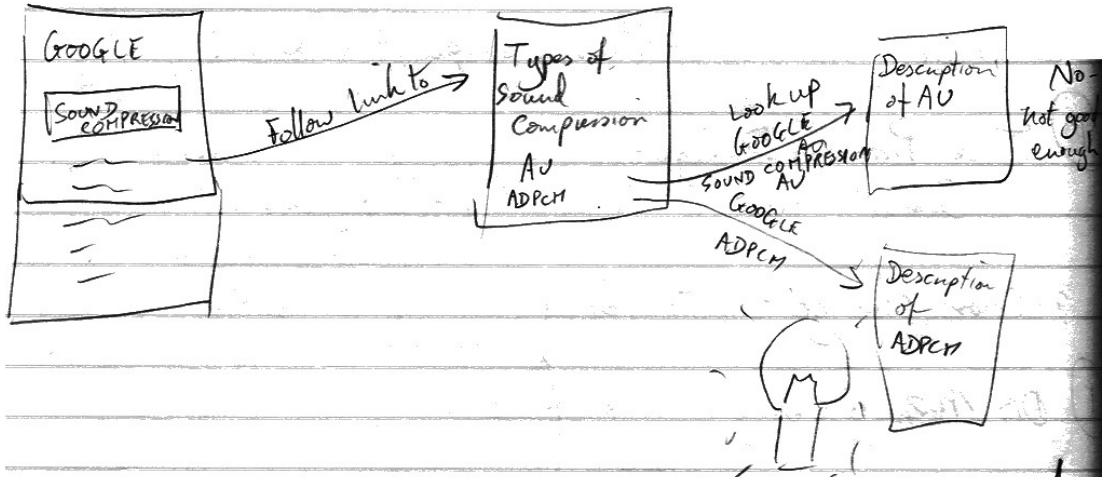 GOOGLE
SOUND
COMPRESSION
Follow link to
Types of
Sound
Compression
AU
ADPCM
Look up
GOOGLE
AU
SOUND COMPRESSION
AU
GOOGLE
ADPCM
Description
of AU
No-
not good
enough
Description
of
ADPCM